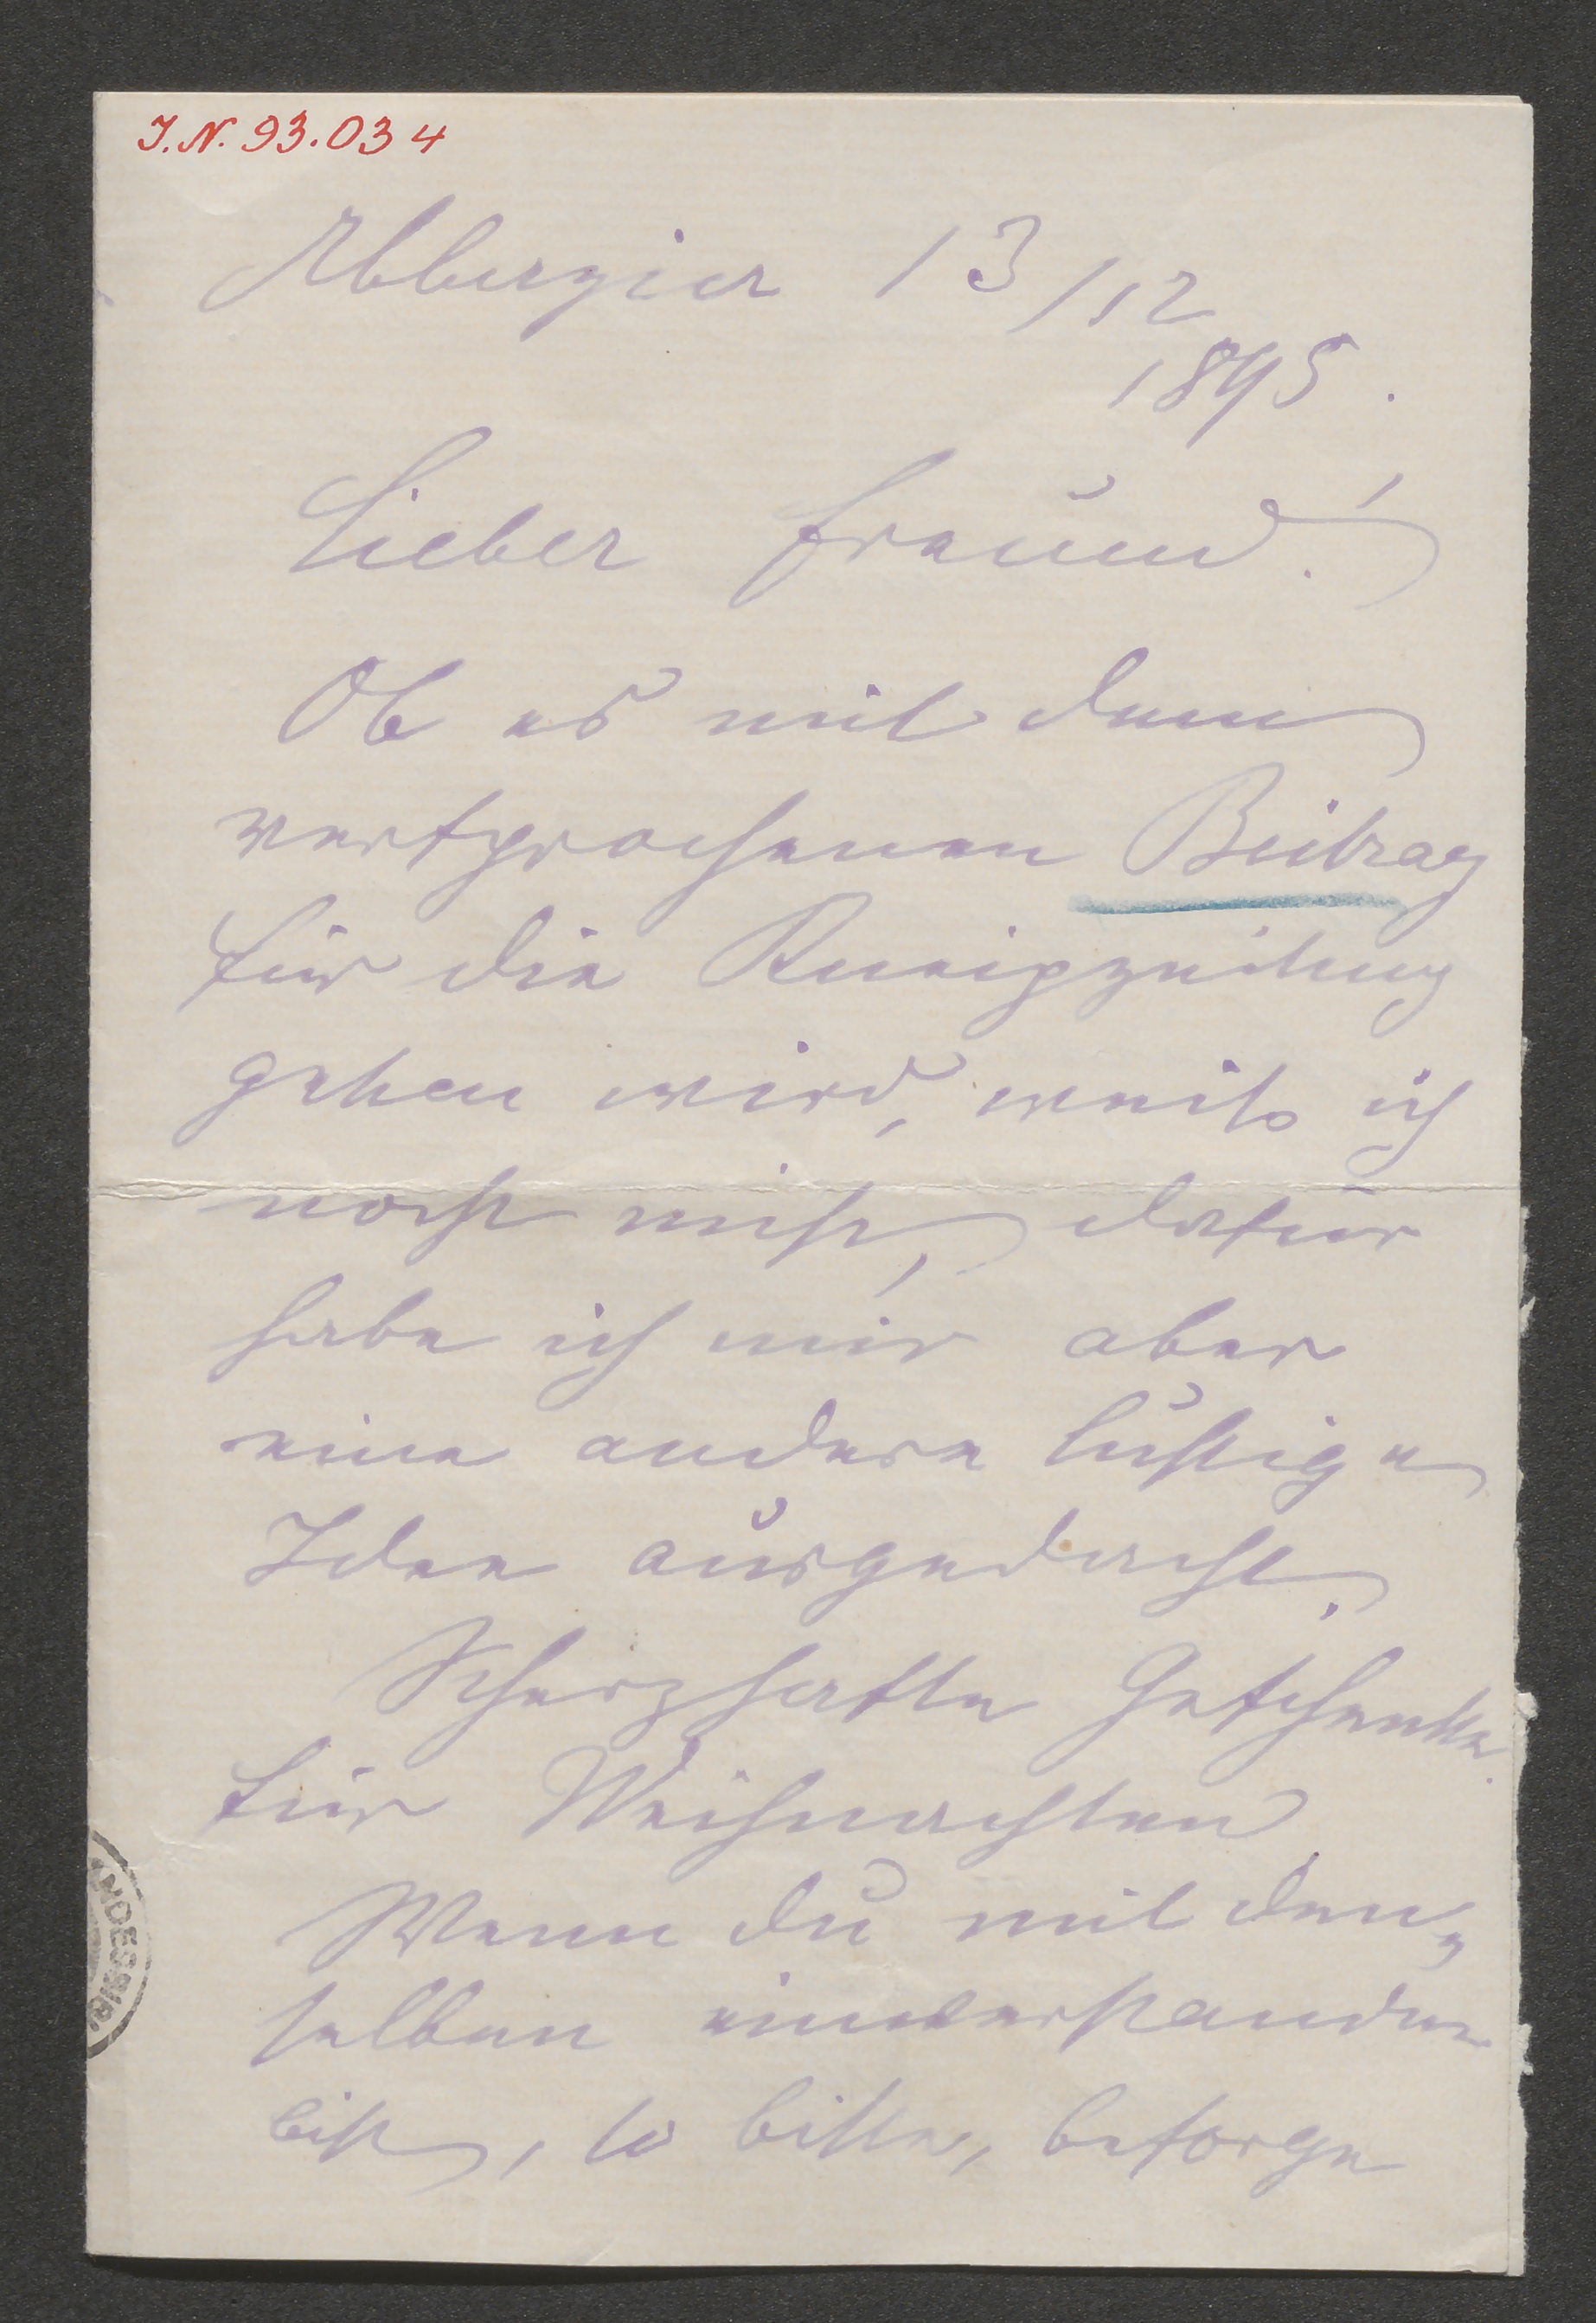 J.N. 93.034
Abbazia 13/12
1895.
Lieber Freund!
Ob es mit dem
versprochenen Beitrag
für die Kneipzeitung
gehen wird, weiß ich
noch nicht, dafür
habe ich mir aber
eine andere lustige
Idee ausgedacht.
Scherzhafte Geschenke
für Weihnachten
Wenn du mit den„
selben einverstanden
bist, so bitte, besorge
NDESBIB